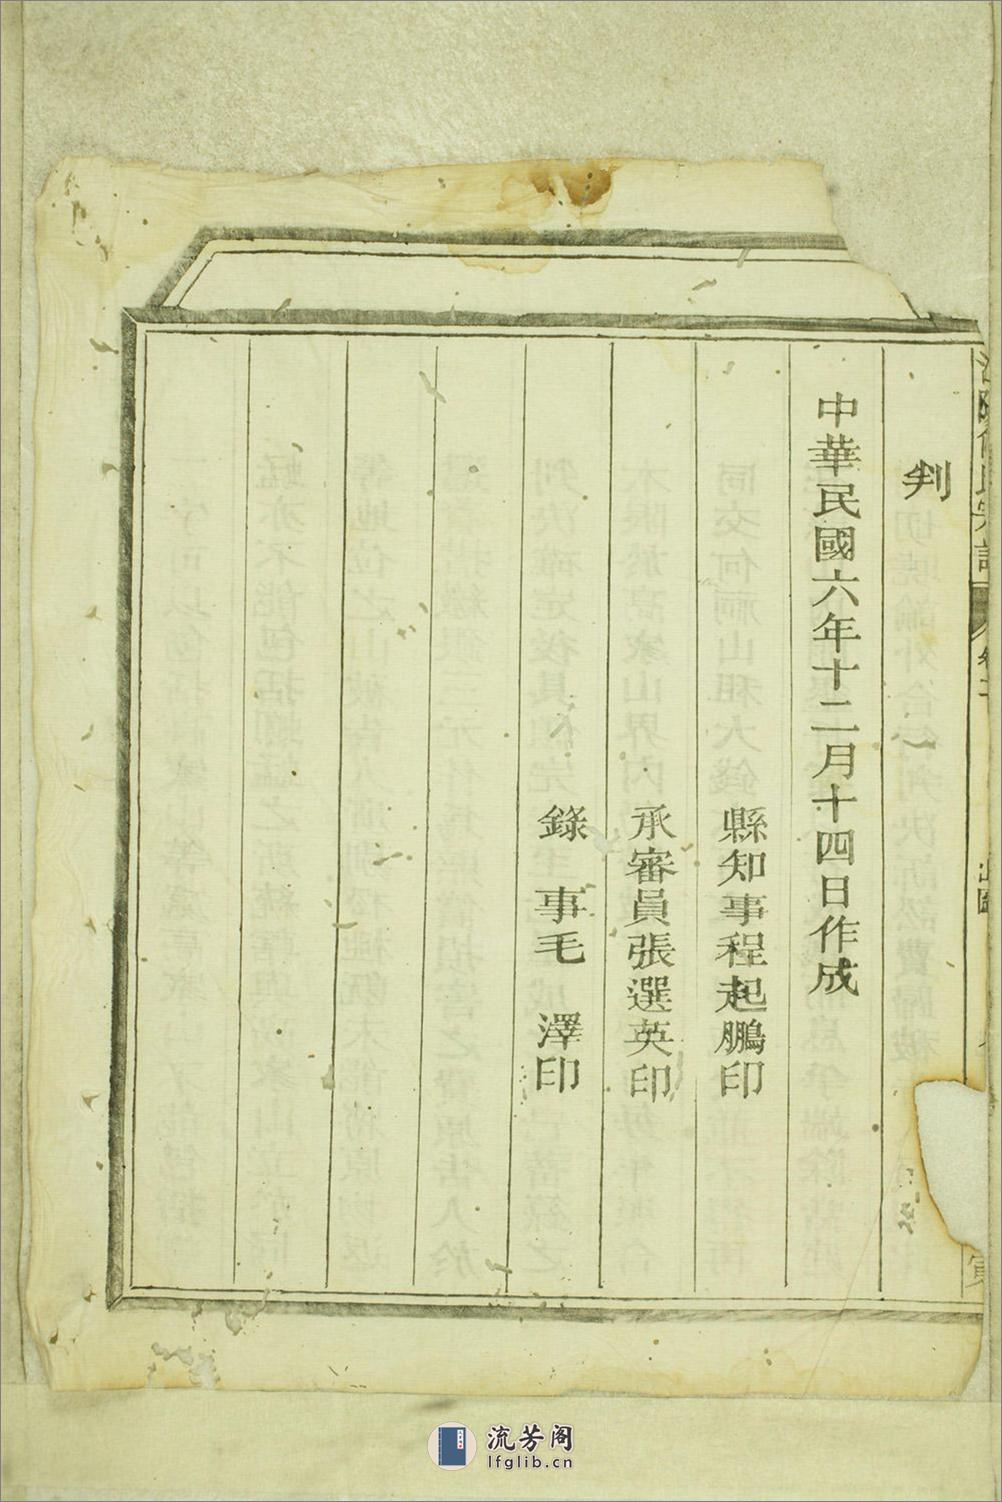 判
中華民國六年十二月十四日作成
縣知事程起鵬印
承審員張選英印
錄事毛澤印
卷二
流芳阁
lfglib.cn